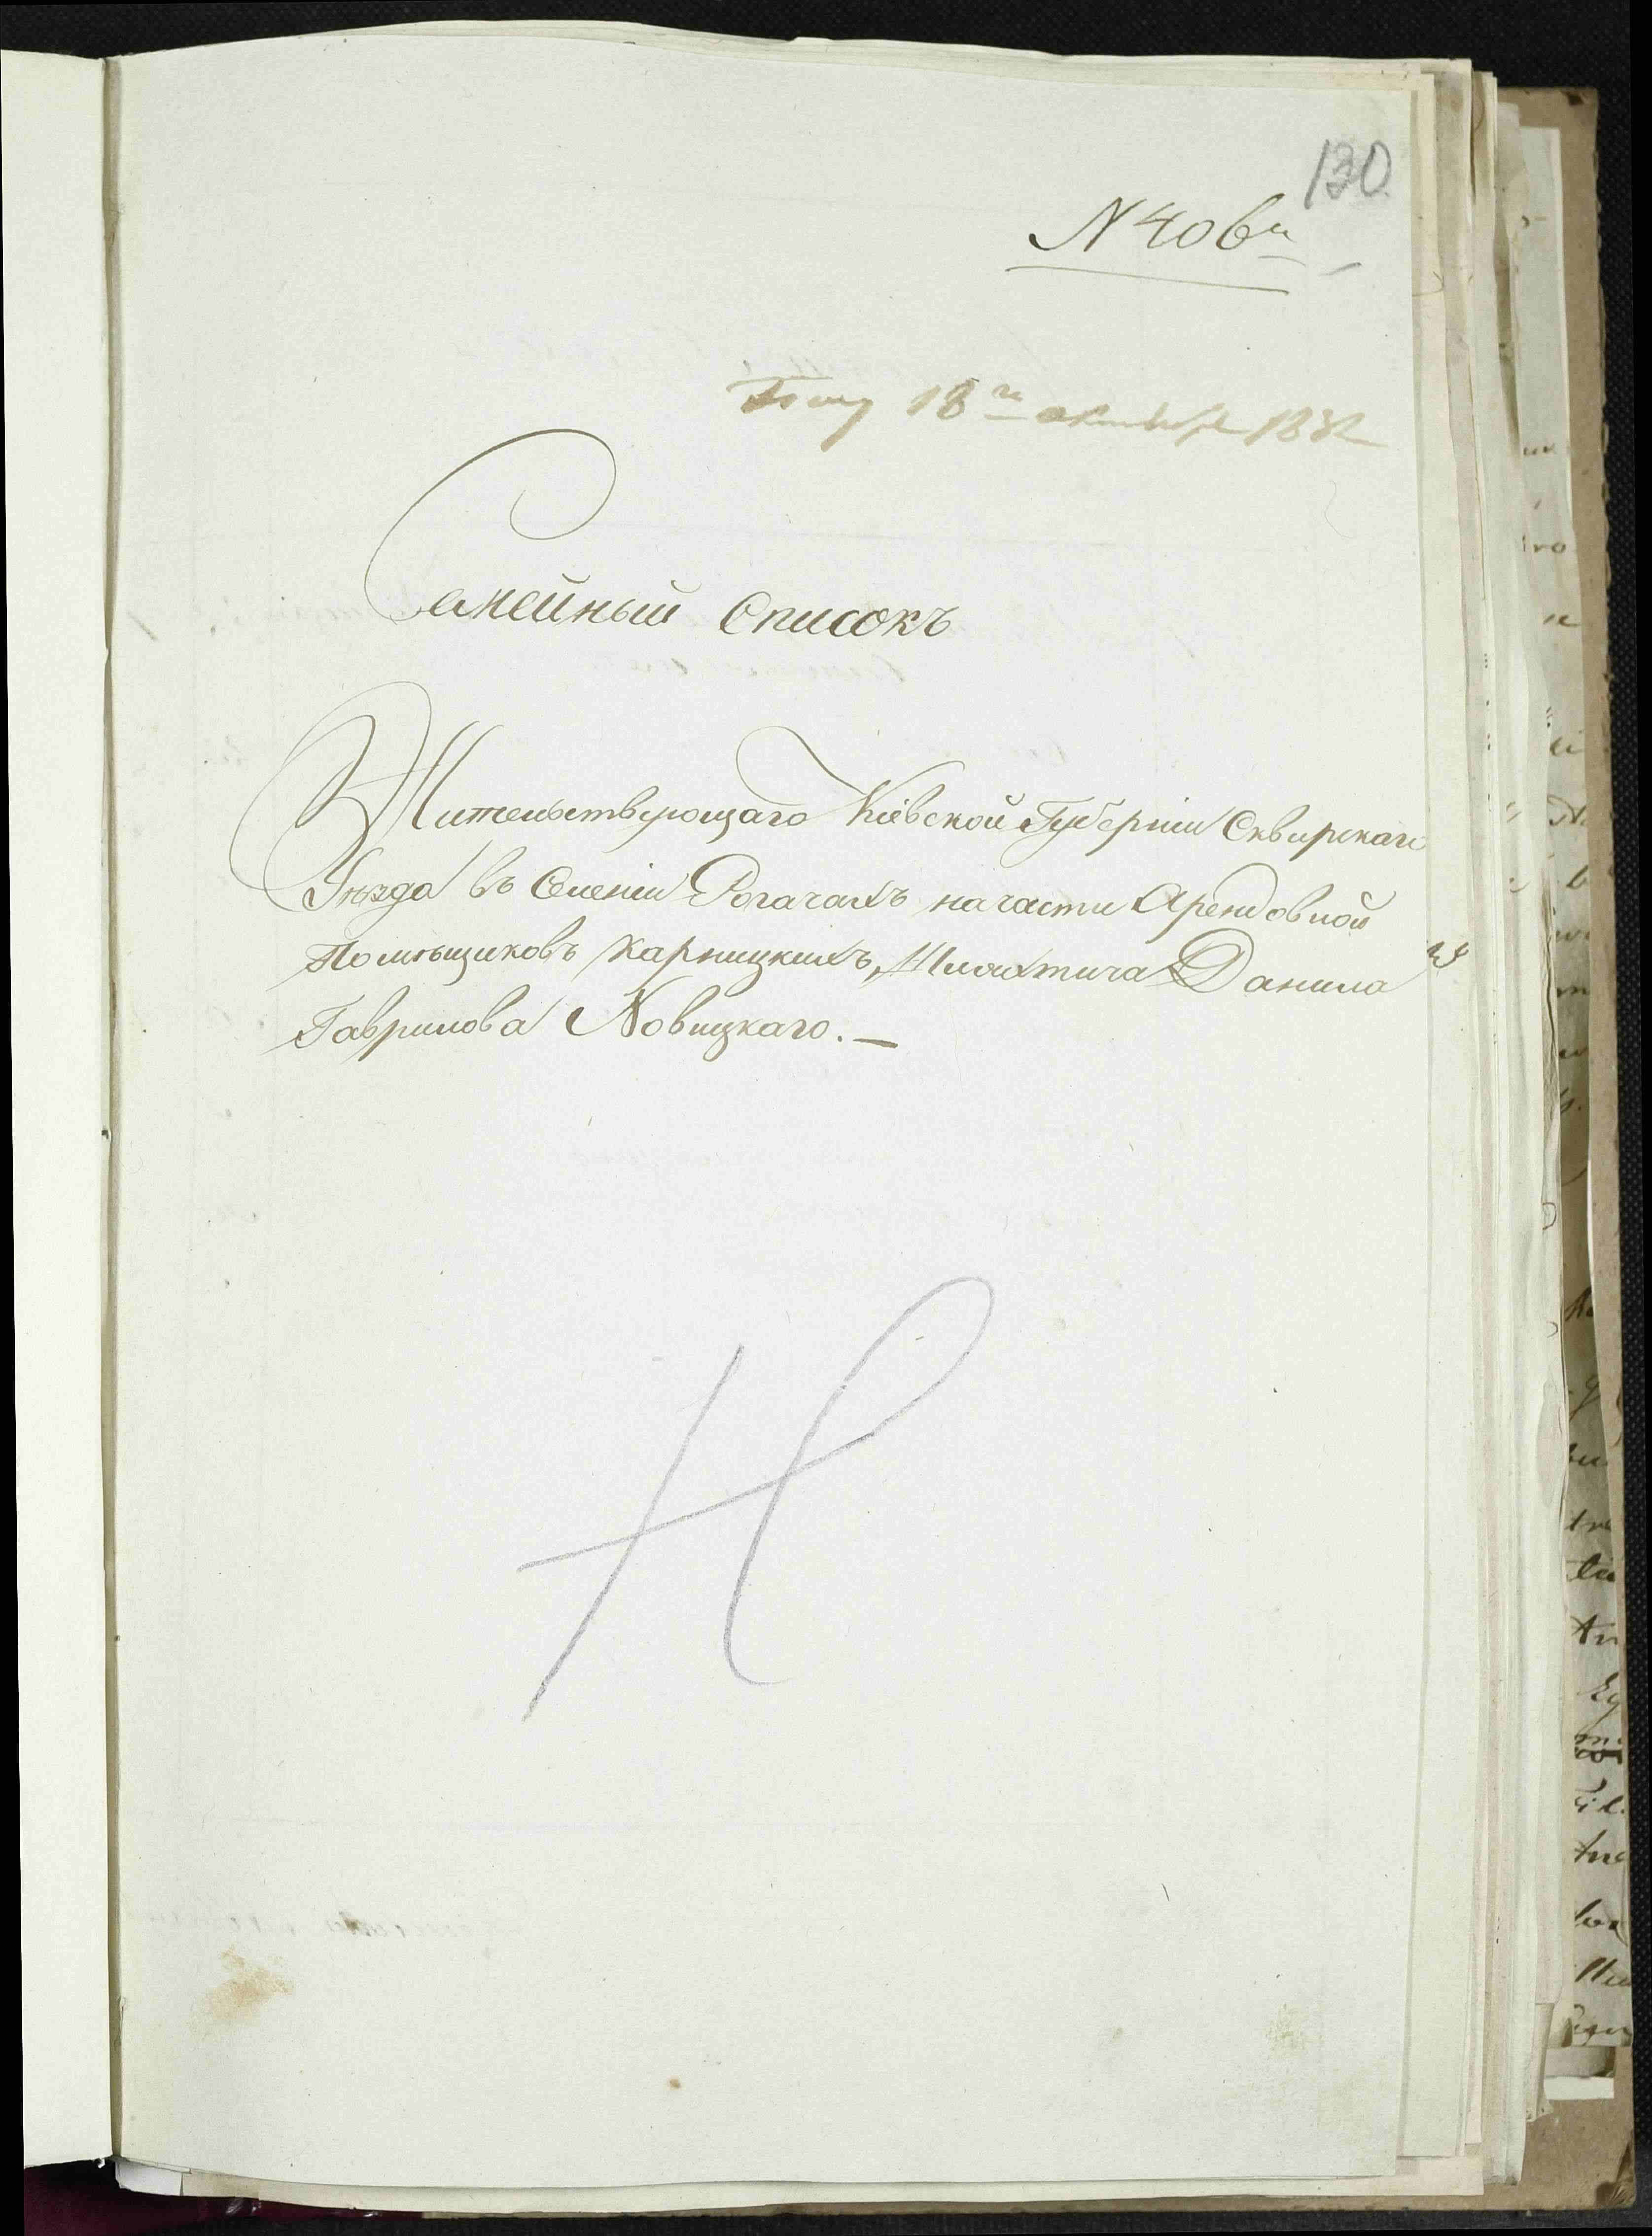 130
N 406й
18го октября 1832
Семейный Списокъ
Жительствующаго Кіевской Губерніи Сквирскаго
Уѣзда въ Селеніи Рогачахъ на части Арендовной
Помѣщиковъ Карницкихъ, Шляхтича Данила
Гаврилова Новицкаго. —
Н